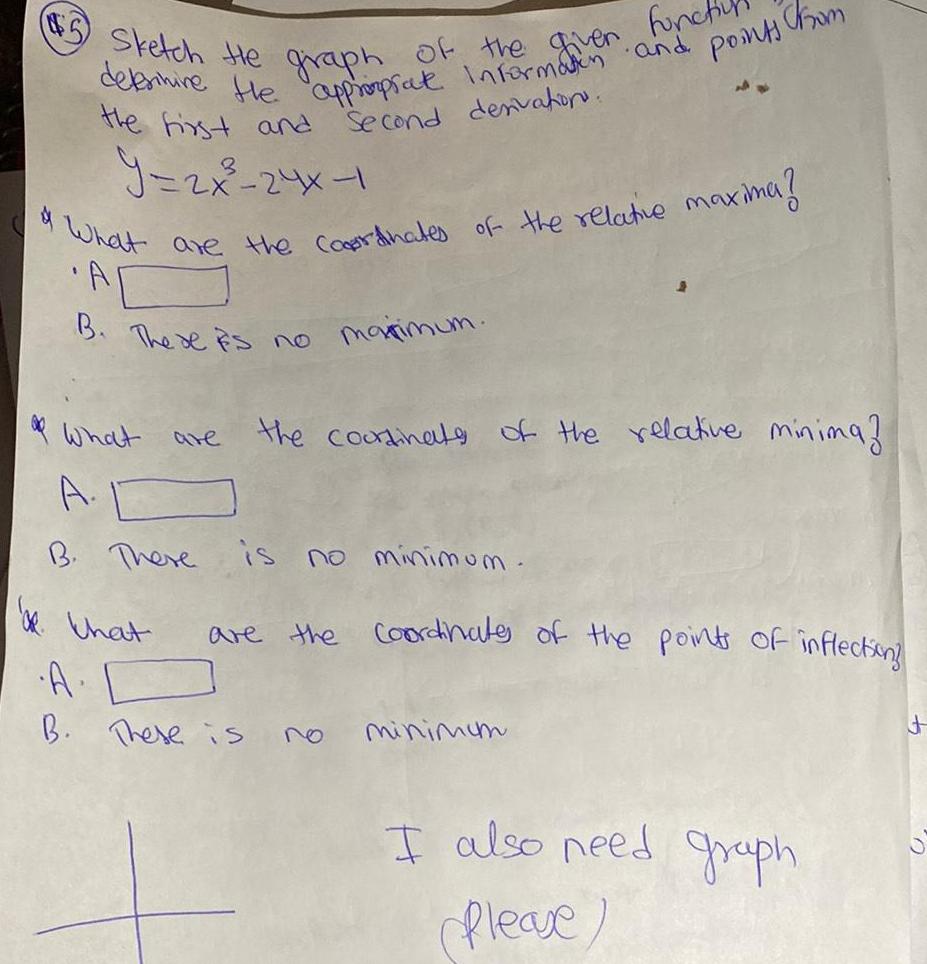 45 Sketch the graph of the given function
determine the appropriate information and points from
the first and second derivation.
y=2x³-24x-1
What are the coordinates of the relative maxima?
A
B. There is no maximum.
What are the coordinates of the relative minima?
A.
B. There is no minimum.
What are the coordinates of the points of inflection?
A.
B. There is no minimum
I also need graph
(Please)